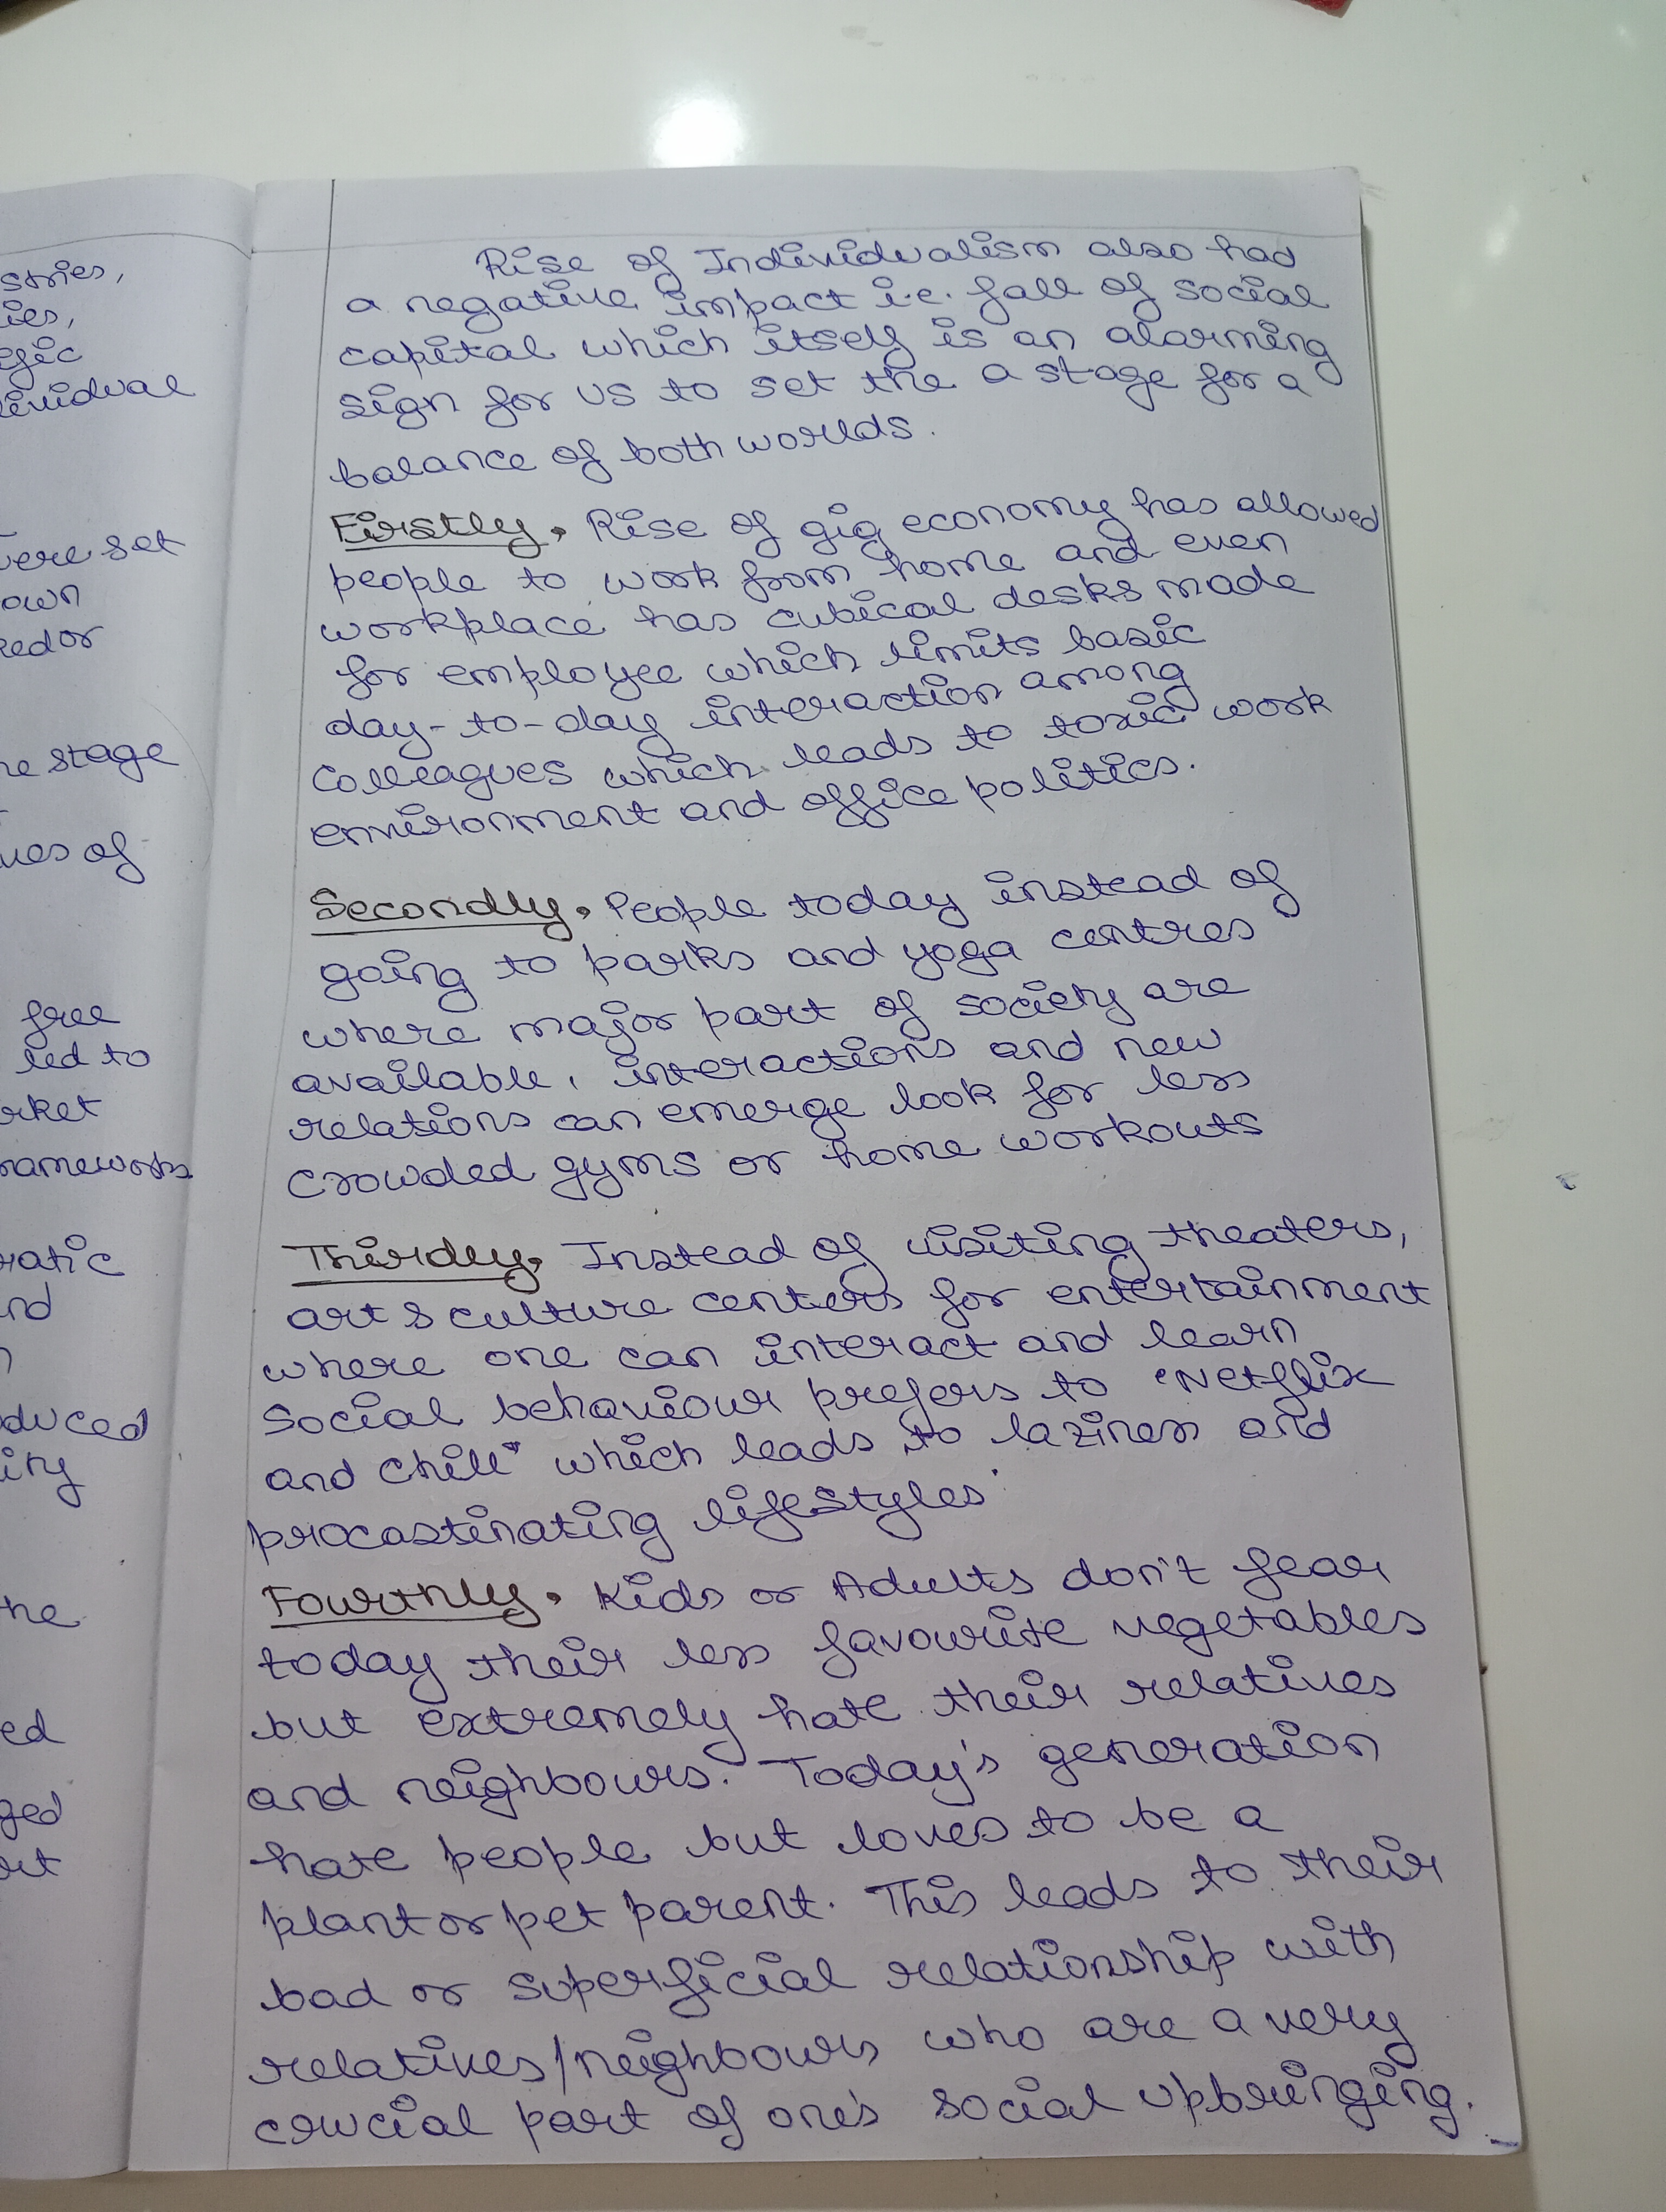 stries,
ies,
ific
ividual
were set
own
ed or
he stage
ues of
free
led to
rket
rameworks
ratic
nd
n
duced
ity
he
ed
ged
rt
Rise of Individualism also had
a negative impact i.e. fall of social
capital which itself is an alarming
sign for us to set the a stage for a
balance of both worlds.
Firstly, Rise of gig economy has allowed
people to work from home and even
workplace has cubical desks made
for employee which limits basic
day-to-day interaction among
colleagues which leads to toxic work
environment and office politics.
Secondly, People today instead of
going to parks and yoga centres
where major part of society are
available, interactions and new
relations can emerge look for less
crowded gyms or home workouts
Thirdly, Instead of visiting theaters,
art & culture centers for entertainment
where one can interact and learn
social behaviour prefers to "Netflix
and chill" which leads to laziness and
procastinating lifestyles.
Fourthly, Kids or Adults don't fear
today their less favourite vegetables
but extremely hate their relatives
and neighbours. Today's generation
hate people but loves to be a
plant or pet parent. This leads to their
bad or superficial relationship with
relatives/neighbours who are a very
crucial part of one's social upbringing.